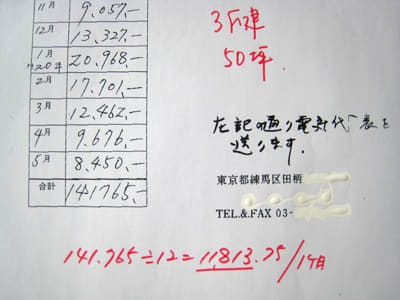 11月 9.057.-
12月 13.327.-
1月 20.968.-
H20年
2月 17.701.-
3月 12.462.-
4月 9.676.-
5月 8.450.-
合計 141765.-
3F建
50坪
左記の通り電気代表を
送ります.
東京都練馬区田柄
TEL.&.FAX 03-
141.765÷12=11,813.75/1ヶ月